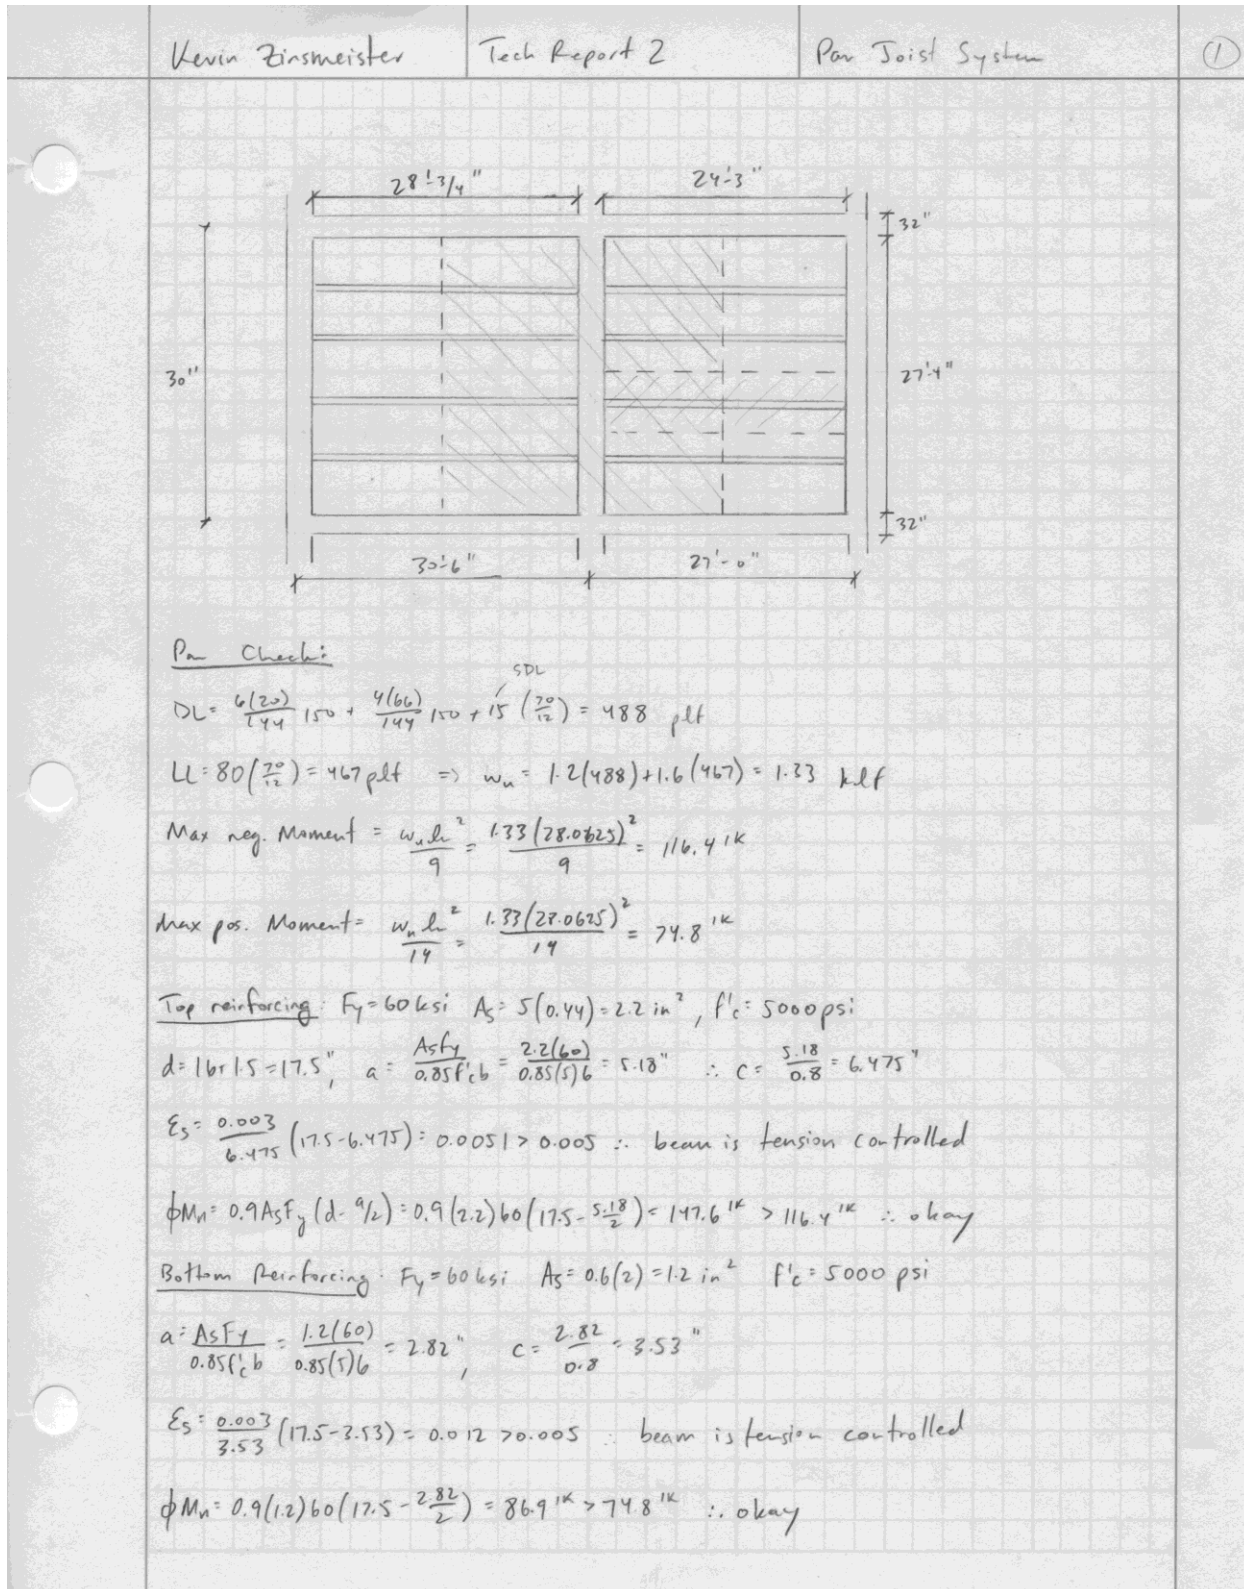 Kevin Zinsmeister Tech Report 2 Pan Joist System 1
28'-3/4" 24'-3"
32"
30" 27'-4"
32"
30'-6" 27'-0"
Pan Check:
SDL
DL = 6(20)/144 150 + 4(66)/144 150 + 15 (70/12) = 488 plf
LL = 80(70/12) = 467 plf => wu = 1.2(488)+1.6(467) = 1.33 klf
Max neg. Moment = wu ln²/9 = 1.33(28.0625)²/9 = 116.4 'k
Max pos. Moment = wu ln²/14 = 1.33(28.0625)²/14 = 74.8 'k
Top reinforcing: Fy = 60 ksi As = 5(0.44) = 2.2 in², f'c = 5000 psi
d = 16+1.5 = 17.5", a = Asfy/0.85f'cb = 2.2(60)/0.85(5)6 = 5.18" ∴ c = 5.18/0.8 = 6.475"
εs = 0.003/6.475 (17.5-6.475) = 0.0051 > 0.005 ∴ beam is tension controlled
φMn = 0.9AsFy(d-a/2) = 0.9(2.2)60(17.5-5.18/2) = 147.6 'k > 116.4 'k ∴ okay
Bottom Reinforcing: Fy = 60 ksi As = 0.6(2) = 1.2 in² f'c = 5000 psi
a = AsFy/0.85f'cb = 1.2(60)/0.85(5)6 = 2.82", c = 2.82/0.8 = 3.53"
εs = 0.003/3.53 (17.5-3.53) = 0.012 > 0.005 ∴ beam is tension controlled
φMn = 0.9(1.2)60(17.5-2.82/2) = 86.9 'k > 74.8 'k ∴ okay